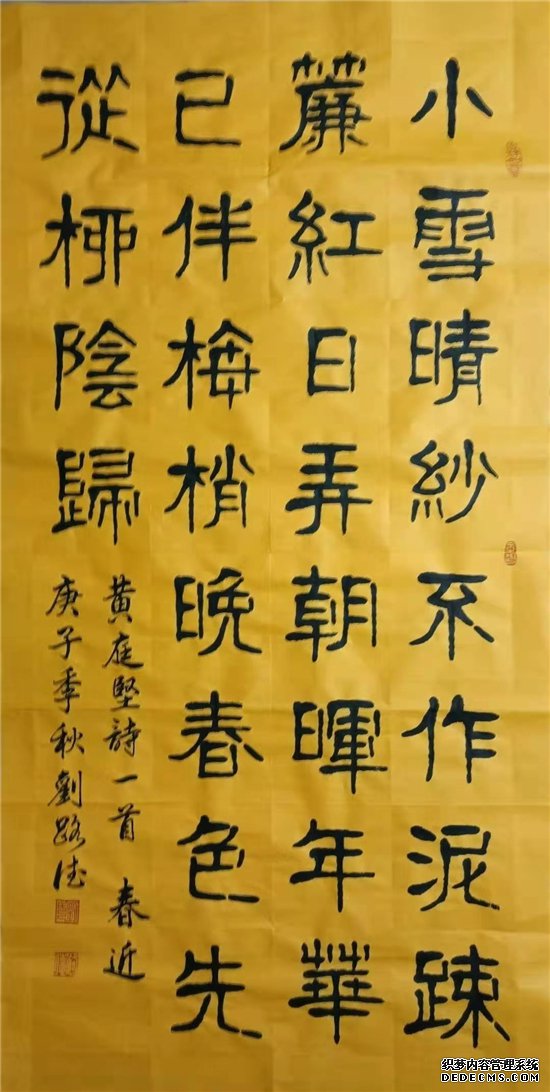 小雪晴紗不作泥踈
簾紅日弄朝暉年華
已伴梅梢晚春色先
從柳陰歸
黄庭堅詩一首 春近
庚子季秋劉路
织梦内容管理系统
DEDECMS.COM